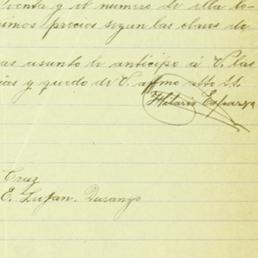 venta y el numero de ella
precios segun las clases de
asunto le anticipo á V. las
y quedo de V. affmo atto S.S.
Hilario Esparza
Cruz
E. Lujan. Durango